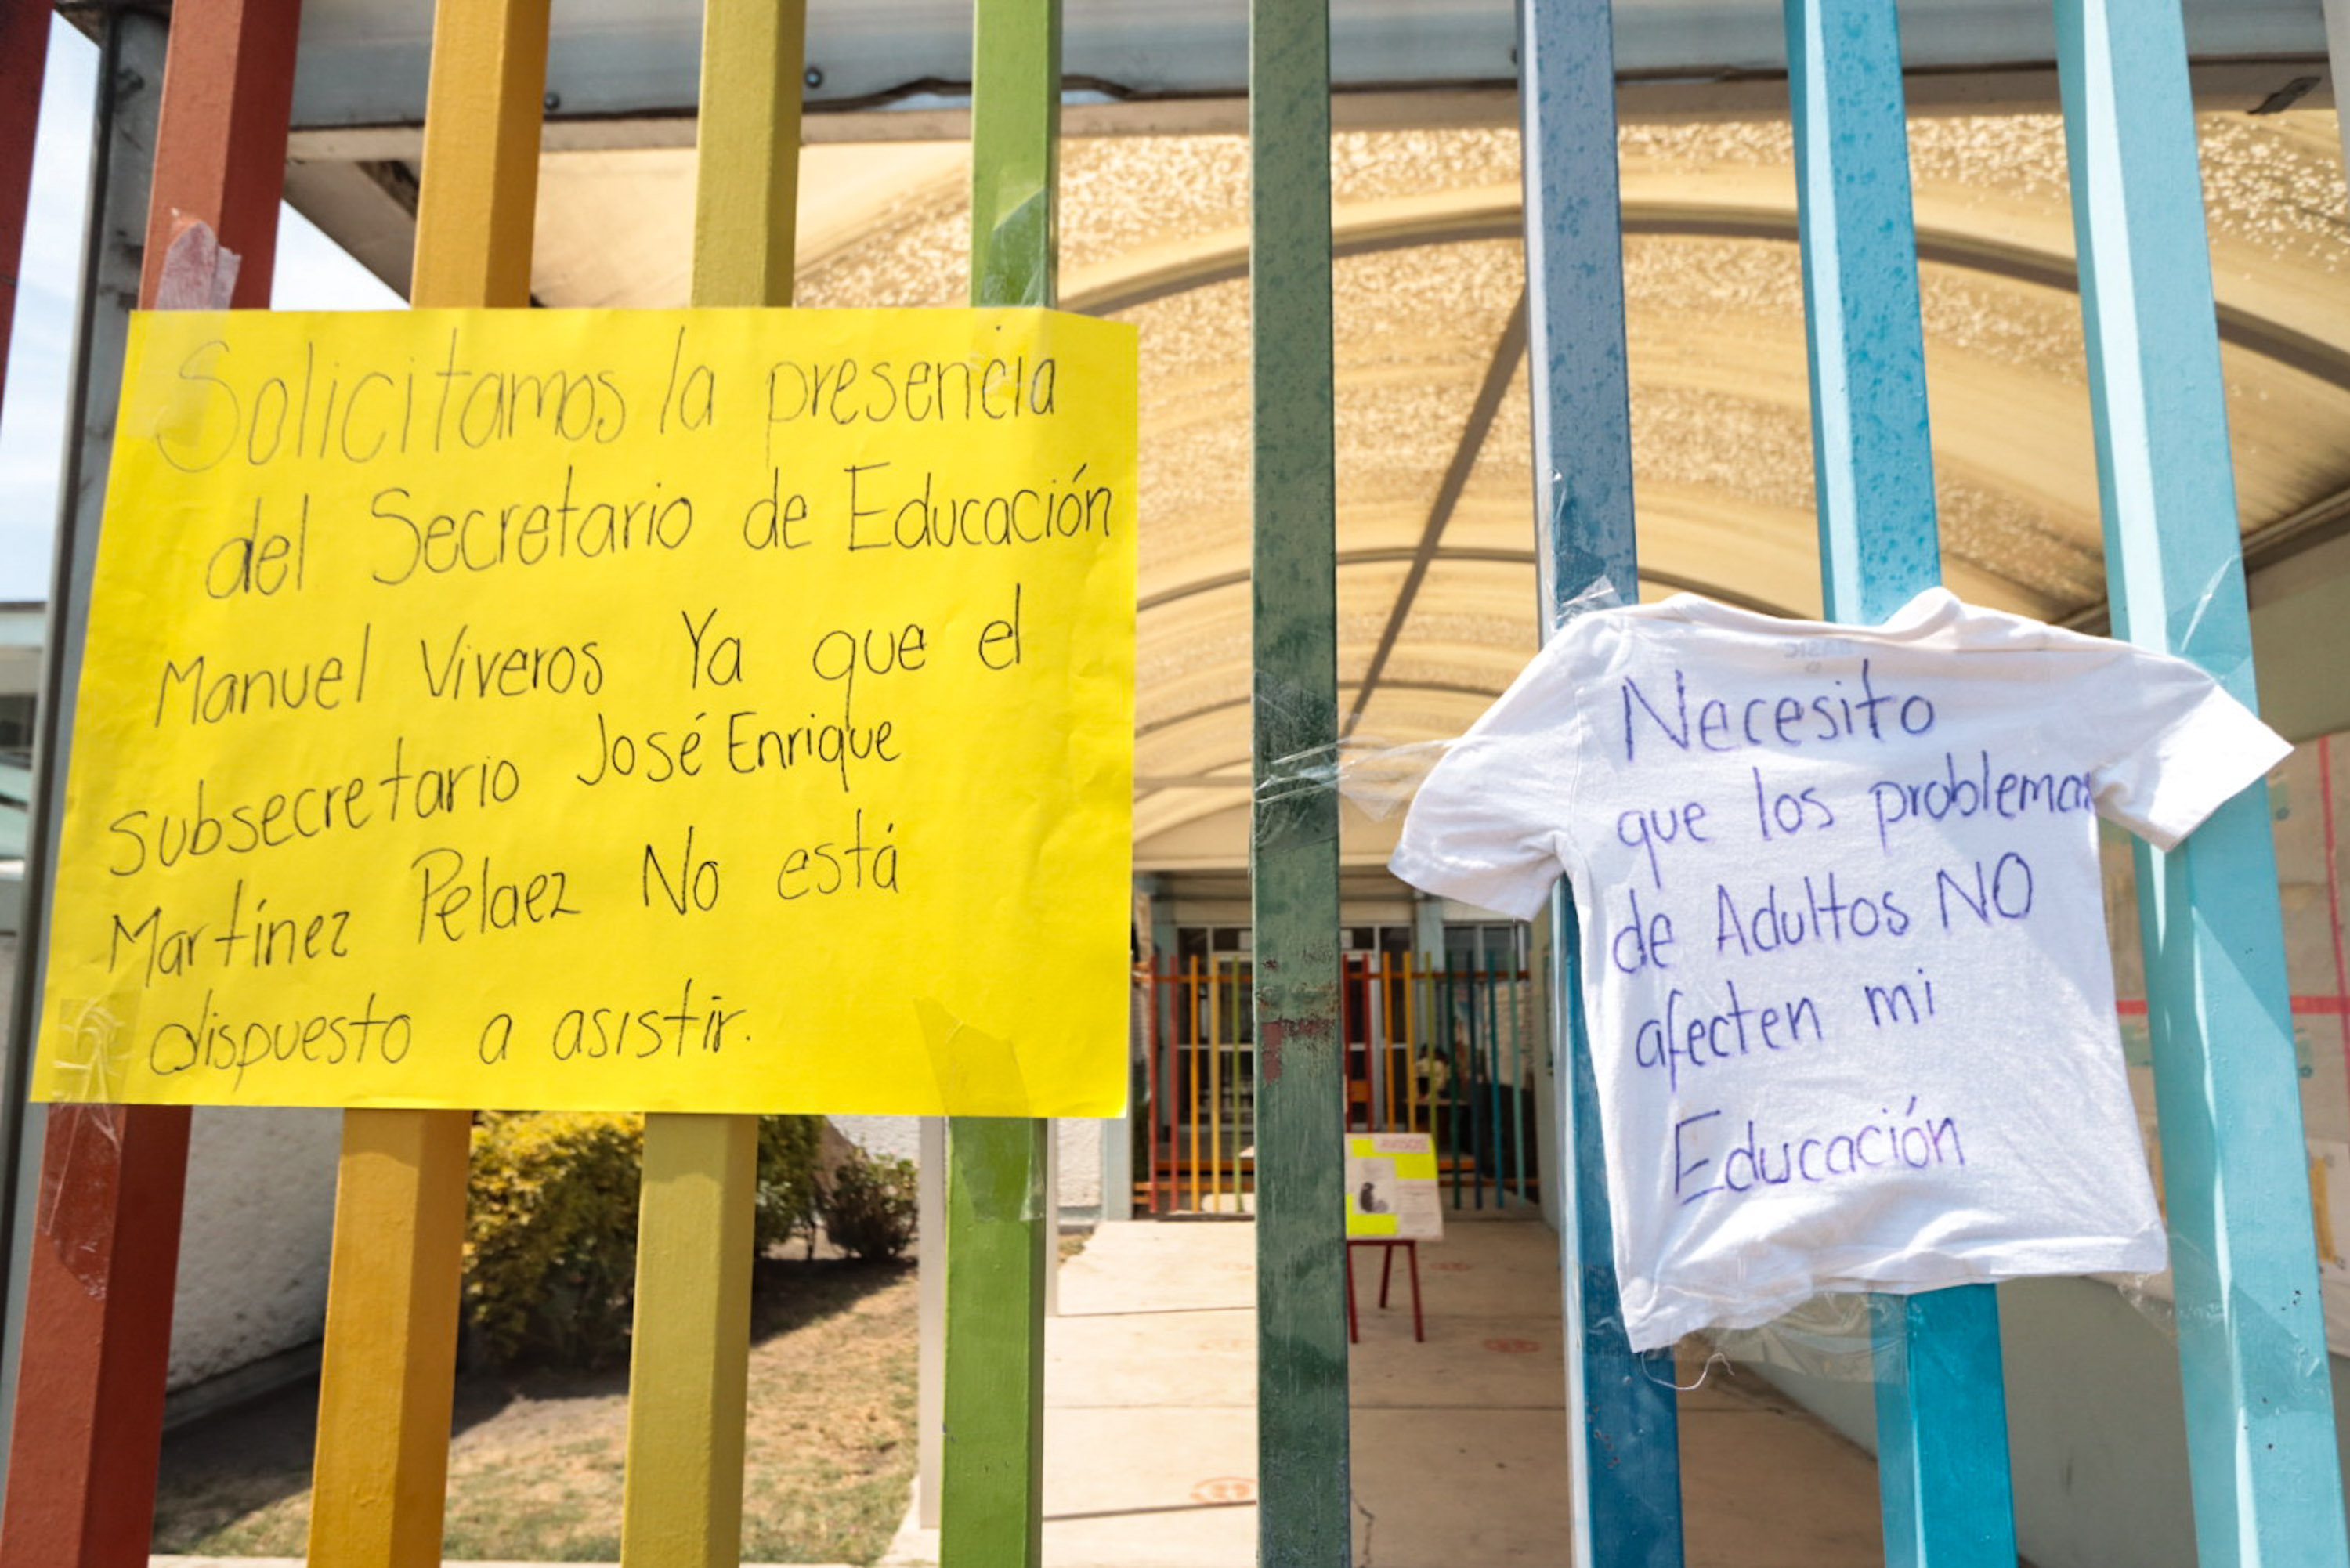 Solicitamos la presencia
del Secretario de Educación
Manuel Viveros Ya que el
subsecretario José Enrique
Martínez Pelaez No está
dispuesto a asistir.
Necesito
que los problemas
de Adultos NO
afecten mi
Educación
AVISOS